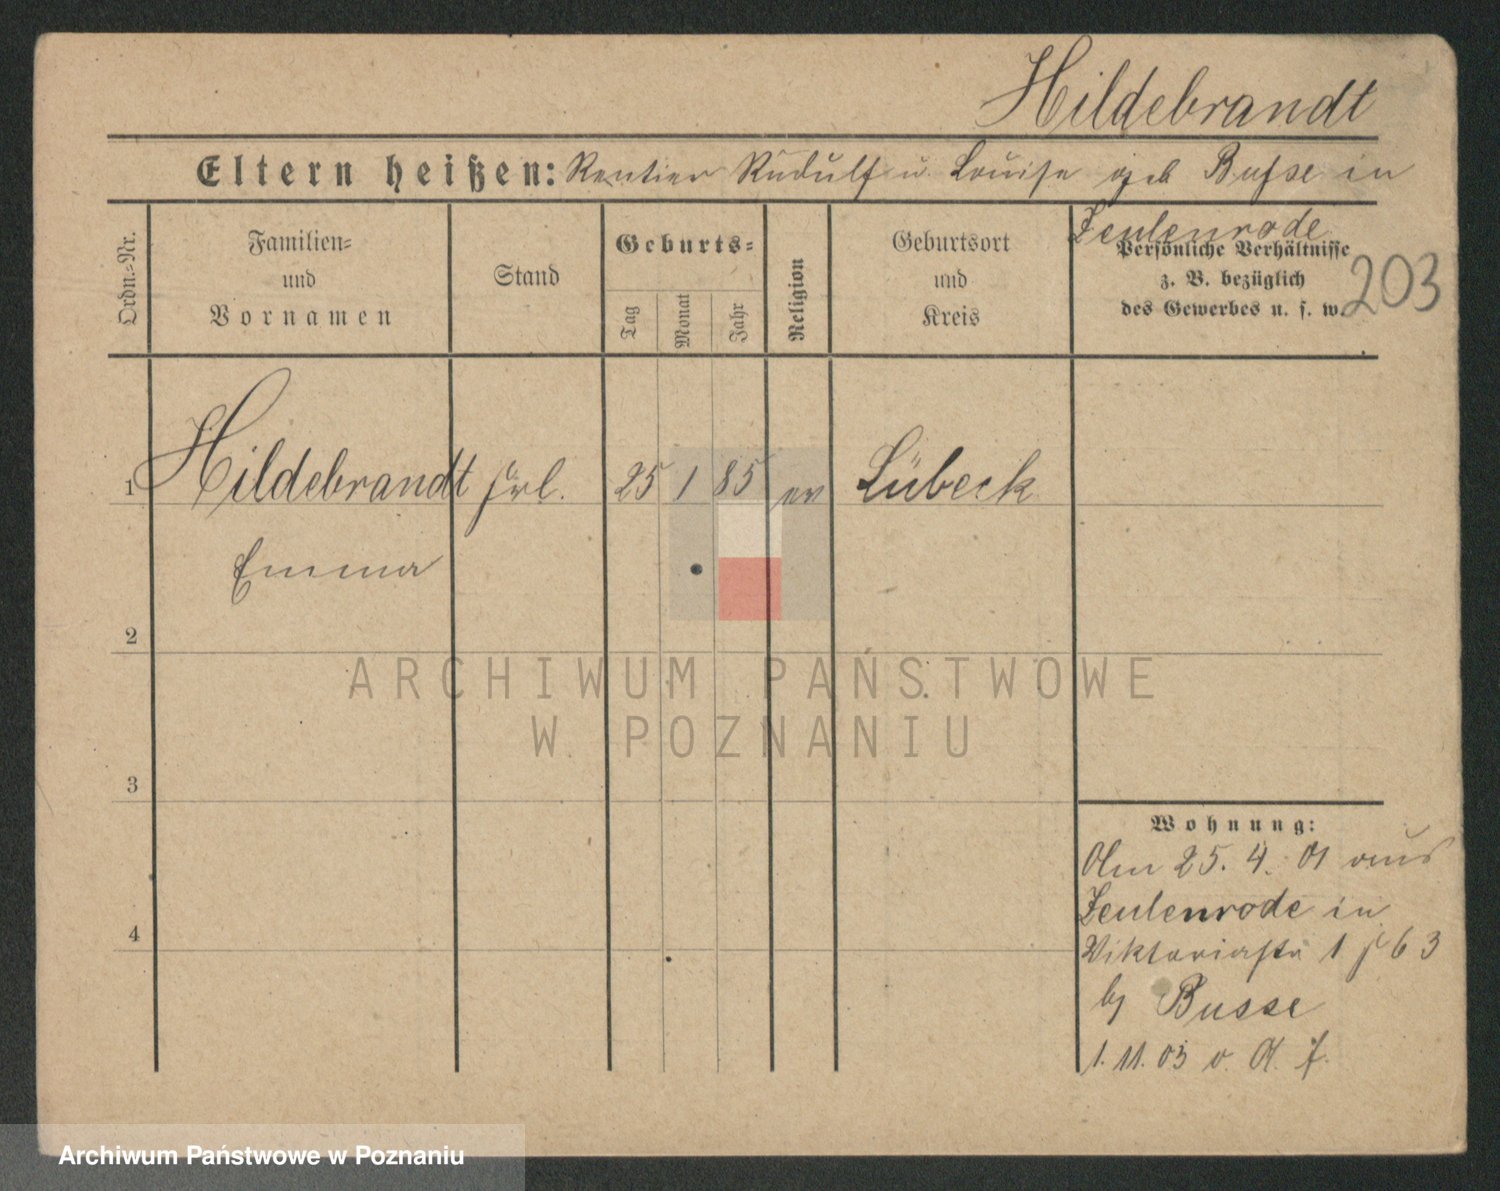 Hildebrandt
Eltern heißen: Rentier Rudolf u. Louise geb Busse in
Zeulenrode
Ordn.-Nr.
Familien-
und
Vornamen
Stand
Geburts-
Tag
Monat
Jahr
Religion
Geburtsort
und
Kreis
Persönliche Verhältnisse
z. B. bezüglich
des Gewerbes u. s. w.
203
1 Hildebrandt Frl. 25 1 85 ev Lübeck
Emma
2
3
4
ARCHIWUM PAŃSTWOWE
W POZNANIU
Wohnung:
Am 25. 4. 01 aus
Zeulenrode in
Viktoriastr 1 63
bj Busse
1. 11. 03 v. A.
Archiwum Państwowe w Poznaniu